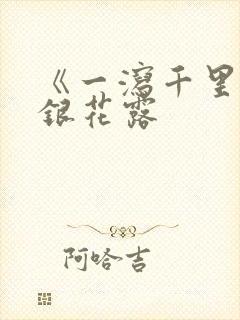 《一瀉千里
銀花露
阿哈吉